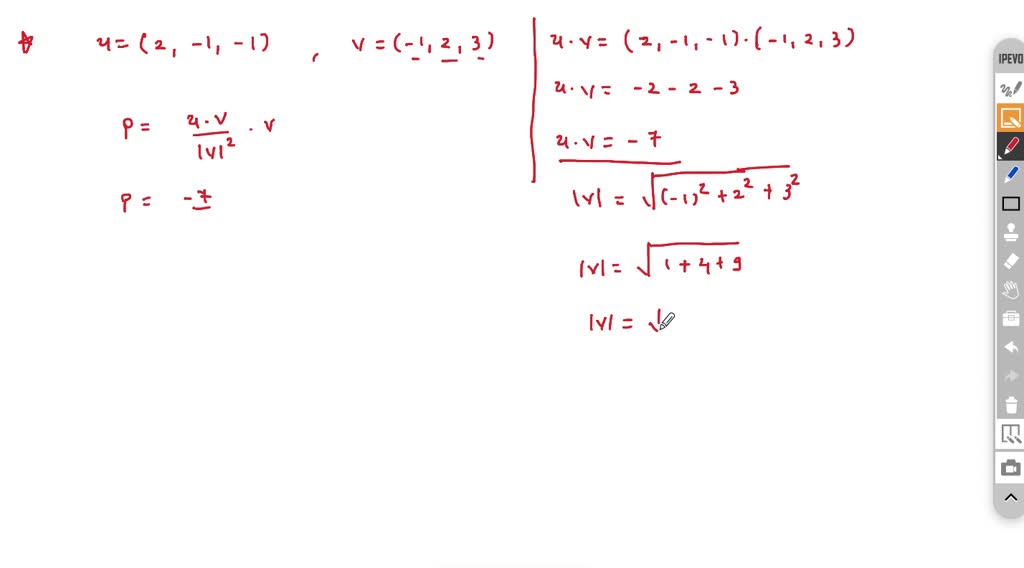 u = (2, -1, -1) , v = (-1, 2, 3)
P = u·v / |v|² · v
P = -7
u·v = (2, -1, -1)·(-1, 2, 3)
u·v = -2 - 2 - 3
u·v = -7
|v| = √(-1)² + 2² + 3²
|v| = √1 + 4 + 9
|v| = √
IPEVO